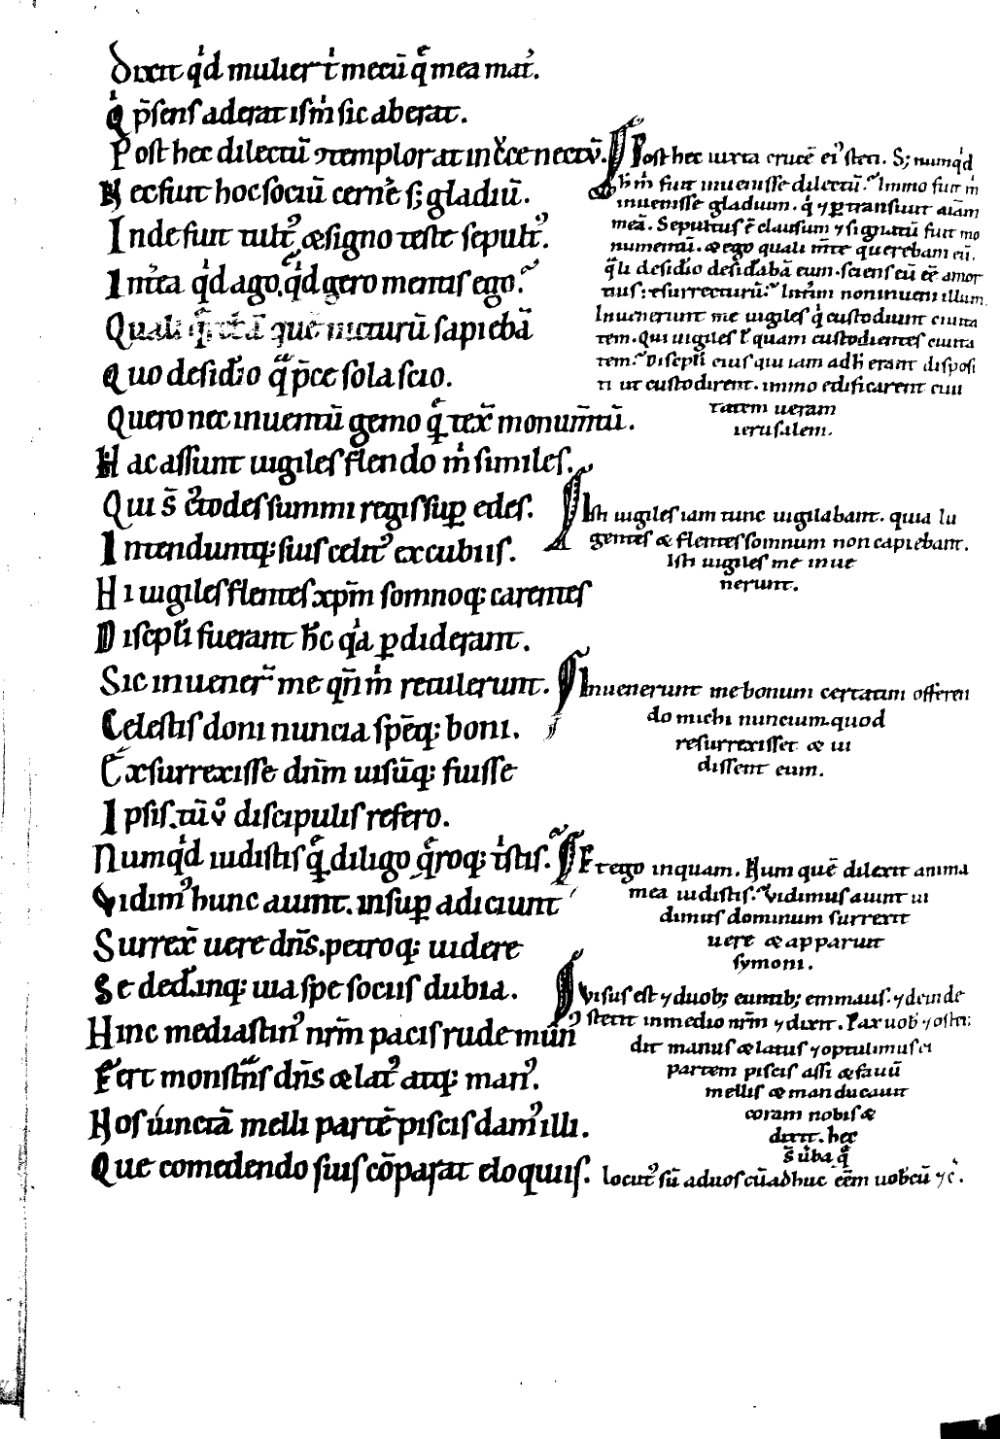 Dixit qͥd mulier tͥ mecū q̄ mea mat᷒.
Qͥ p̄sens aderat ism̊ sic aberat.
Post hec dilectū ꝯtemplorat in c̄ce nectū.
Nec fuit hoc sociū cern̄e sꝫ gladiū.
Inde fuit tult᷒ & signo teste sepult᷒.
Int᷒ea qͥd ago, qͥd gero mentis ego.
Quali q̄ que uicturū sapiebā
Quo desid̄io q̄ p̄ce sola scio.
Quero nec inuentū gemo q̄ tex̄ monum̄tū.
Hac assunt uigiles flendo m̊ similes.
Qui s̄ c᷒todes summi regis suꝑ edes.
Intenduntqꝫ suis celit᷒ excubiis.
Hi uigiles flentes xp̄m somnoqꝫ carentes
Discipl̄i fuerant h̄c qͣa ꝑdiderant.
Sic inuener̄ me qn̄ m̊ retulerunt.
Celestis doni nuncia sp̄eqꝫ boni.
Exsurrexisse dn̄m uisūqꝫ fuisse
Ipsis, tū uͦ discipulis refero.
Numqͥd uidistis q̄ diligo q̄roqꝫ tͥstis.
Vidim᷒ hunc aiunt. insuꝑ adiciunt
Surrex̄ uere dn̄s. petroqꝫ uidere
Se ded̄inqꝫ uia spe sociis dubia.
Hinc mediastin᷒ nr̄m pacis rude mun᷒
Fert monstn̄s dn̄s & lat᷒ atqꝫ man᷒.
Hos uinctā melli partē piscis dam᷒ illi.
Que comedendo suis cōparat eloquiis.
Post hec iuxta crucē ei᷒ steti. Sꝫ numqͥd
h̄ m̊ fuit inuenisse dilectū. Immo fuit m̊
inuenisse gladium. qͥ ⁊ ꝑtransiuit aīam
meā. Sepultus ē clausum ⁊ signatū fuit mo
numentū. & ego quali m̄te querebam eū.
q̄li desid̄io desid̄abā eum. sciens eū eē̄ a mor
tuis resurrecturū. Int̄im non inueni illum.
Inuenerunt me uigiles qͥ custodiunt ciuita
tem. Qui uigiles l̄ quam custodientes ciuita
tem. Discipl̄i eius qui iam adh̄ erant disposi
ti ut custodirent. immo edificarent ciui
tatem ueram
ierusalem.
Isti uigiles iam tunc uigilabant. quia lu
gentes & flentes somnum non capiebant.
Isti uigiles me inue
nerunt.
Inuenerunt me bonum certatim offeren
do michi nuncium. quod
resurrexisset & ui
dissent eum.
Et ego inquam. Num quē dilexit anima
mea uidistis. Vidimus aiunt ui
dimus dominum surrexit
uere & apparuit
symoni.
Visus est ⁊ duobꝫ euntibꝫ emmaus. ⁊ deinde
stetit in medio nr̄m ⁊ dixit. Pax uob̄ ⁊ osten
dit manus & latus ⁊ optulimus ei
partem piscis assi & fauū
mellis & manducauit
coram nobis &
dixit. hec
s̄ ūba q̄
locut᷒ sū ad uos cū adhuc eēm uobcū ⁊c̄.